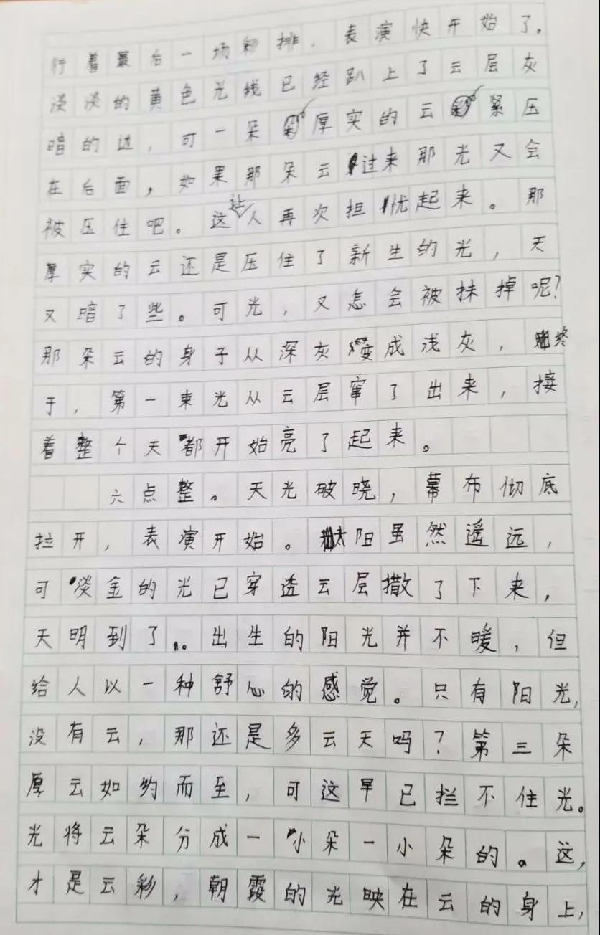 行着最后一场彩排，表演快开始了。
淡淡的黄色光线已经趴上了云层灰
暗的边，可一朵厚实的云紧压
在后面，如果那朵云过来那光又会
被压住吧。这让人再次担忧起来。那
厚实的云还是压住了新生的光，天
又暗了些。可光，又怎会被抹掉呢？
那朵云的身子从深灰变成浅灰，终
于，第一束光从云层窜了出来，接
着整个天都开始亮了起来。
六点整。天光破晓，幕布彻底
拉开，表演开始。太阳虽然遥远，
可淡金的光已穿透云层撒了下来，
天明到了。出生的阳光并不暖，但
给人以一种舒心的感觉。只有阳光，
没有云，那还是多云天吗？第三朵
厚云如约而至，可这早已拦不住光。
光将云朵分成一小朵一小朵的。这，
才是云彩，朝霞的光映在云的身上，